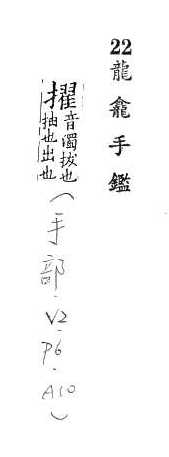 22龍龕手鑑
擢音濁拔也抽也出也(手部.V2.P6.A10)